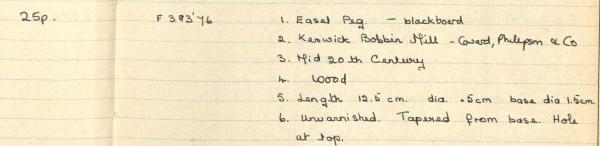 25p. F 383'76 1. Easel Peg. – blackboard
2. Keswick Bobbin Mill – Coward, Philipson & Co
3. Mid 20th Century
4. Wood
5. Length 12.5 cm. dia. .5cm base dia 1.5cm
6. Unvarnished. Tapered from base. Hole
at top.